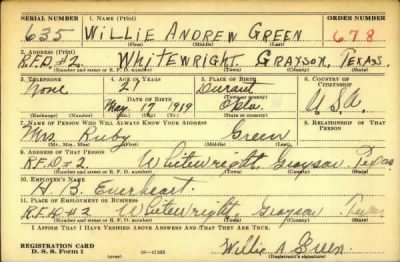 SERIAL NUMBER 1. NAME (Print) ORDER NUMBER
635 WILLIE ANDREW GREEN 678
(First) (Middle) (Last)
2. ADDRESS (Print)
R.F.D. #2. WHITEWRIGHT GRAYSON, TEXAS.
(Number and street or R. F. D. number) (Town) (County) (State)
3. TELEPHONE 4. AGE IN YEARS 5. PLACE OF BIRTH 6. COUNTRY OF CITIZENSHIP
None 21 Durant
DATE OF BIRTH (Town or county)
May 17 1919 Okla. USA
(Mo.) (Day) (Yr.) (State or country)
7. NAME OF PERSON WHO WILL ALWAYS KNOW YOUR ADDRESS 8. RELATIONSHIP OF THAT PERSON
Mrs. Ruby Green
(Mr., Mrs., Miss) (First) (Middle) (Last)
9. ADDRESS OF THAT PERSON
R.F.D #2 Whitewright, Grayson, Texas
(Number and street or R. F. D. number) (Town) (County) (State)
10. EMPLOYER'S NAME
H. B. Everheart.
11. PLACE OF EMPLOYMENT OR BUSINESS
R.F.D #2 Whitewright Grayson Texas
(Number and street or R. F. D. number) (Town) (County) (State)
I AFFIRM THAT I HAVE VERIFIED ABOVE ANSWERS AND THAT THEY ARE TRUE.
REGISTRATION CARD
D. S. S. Form 1 16—17105 Willie A Green
(Registrant's signature)